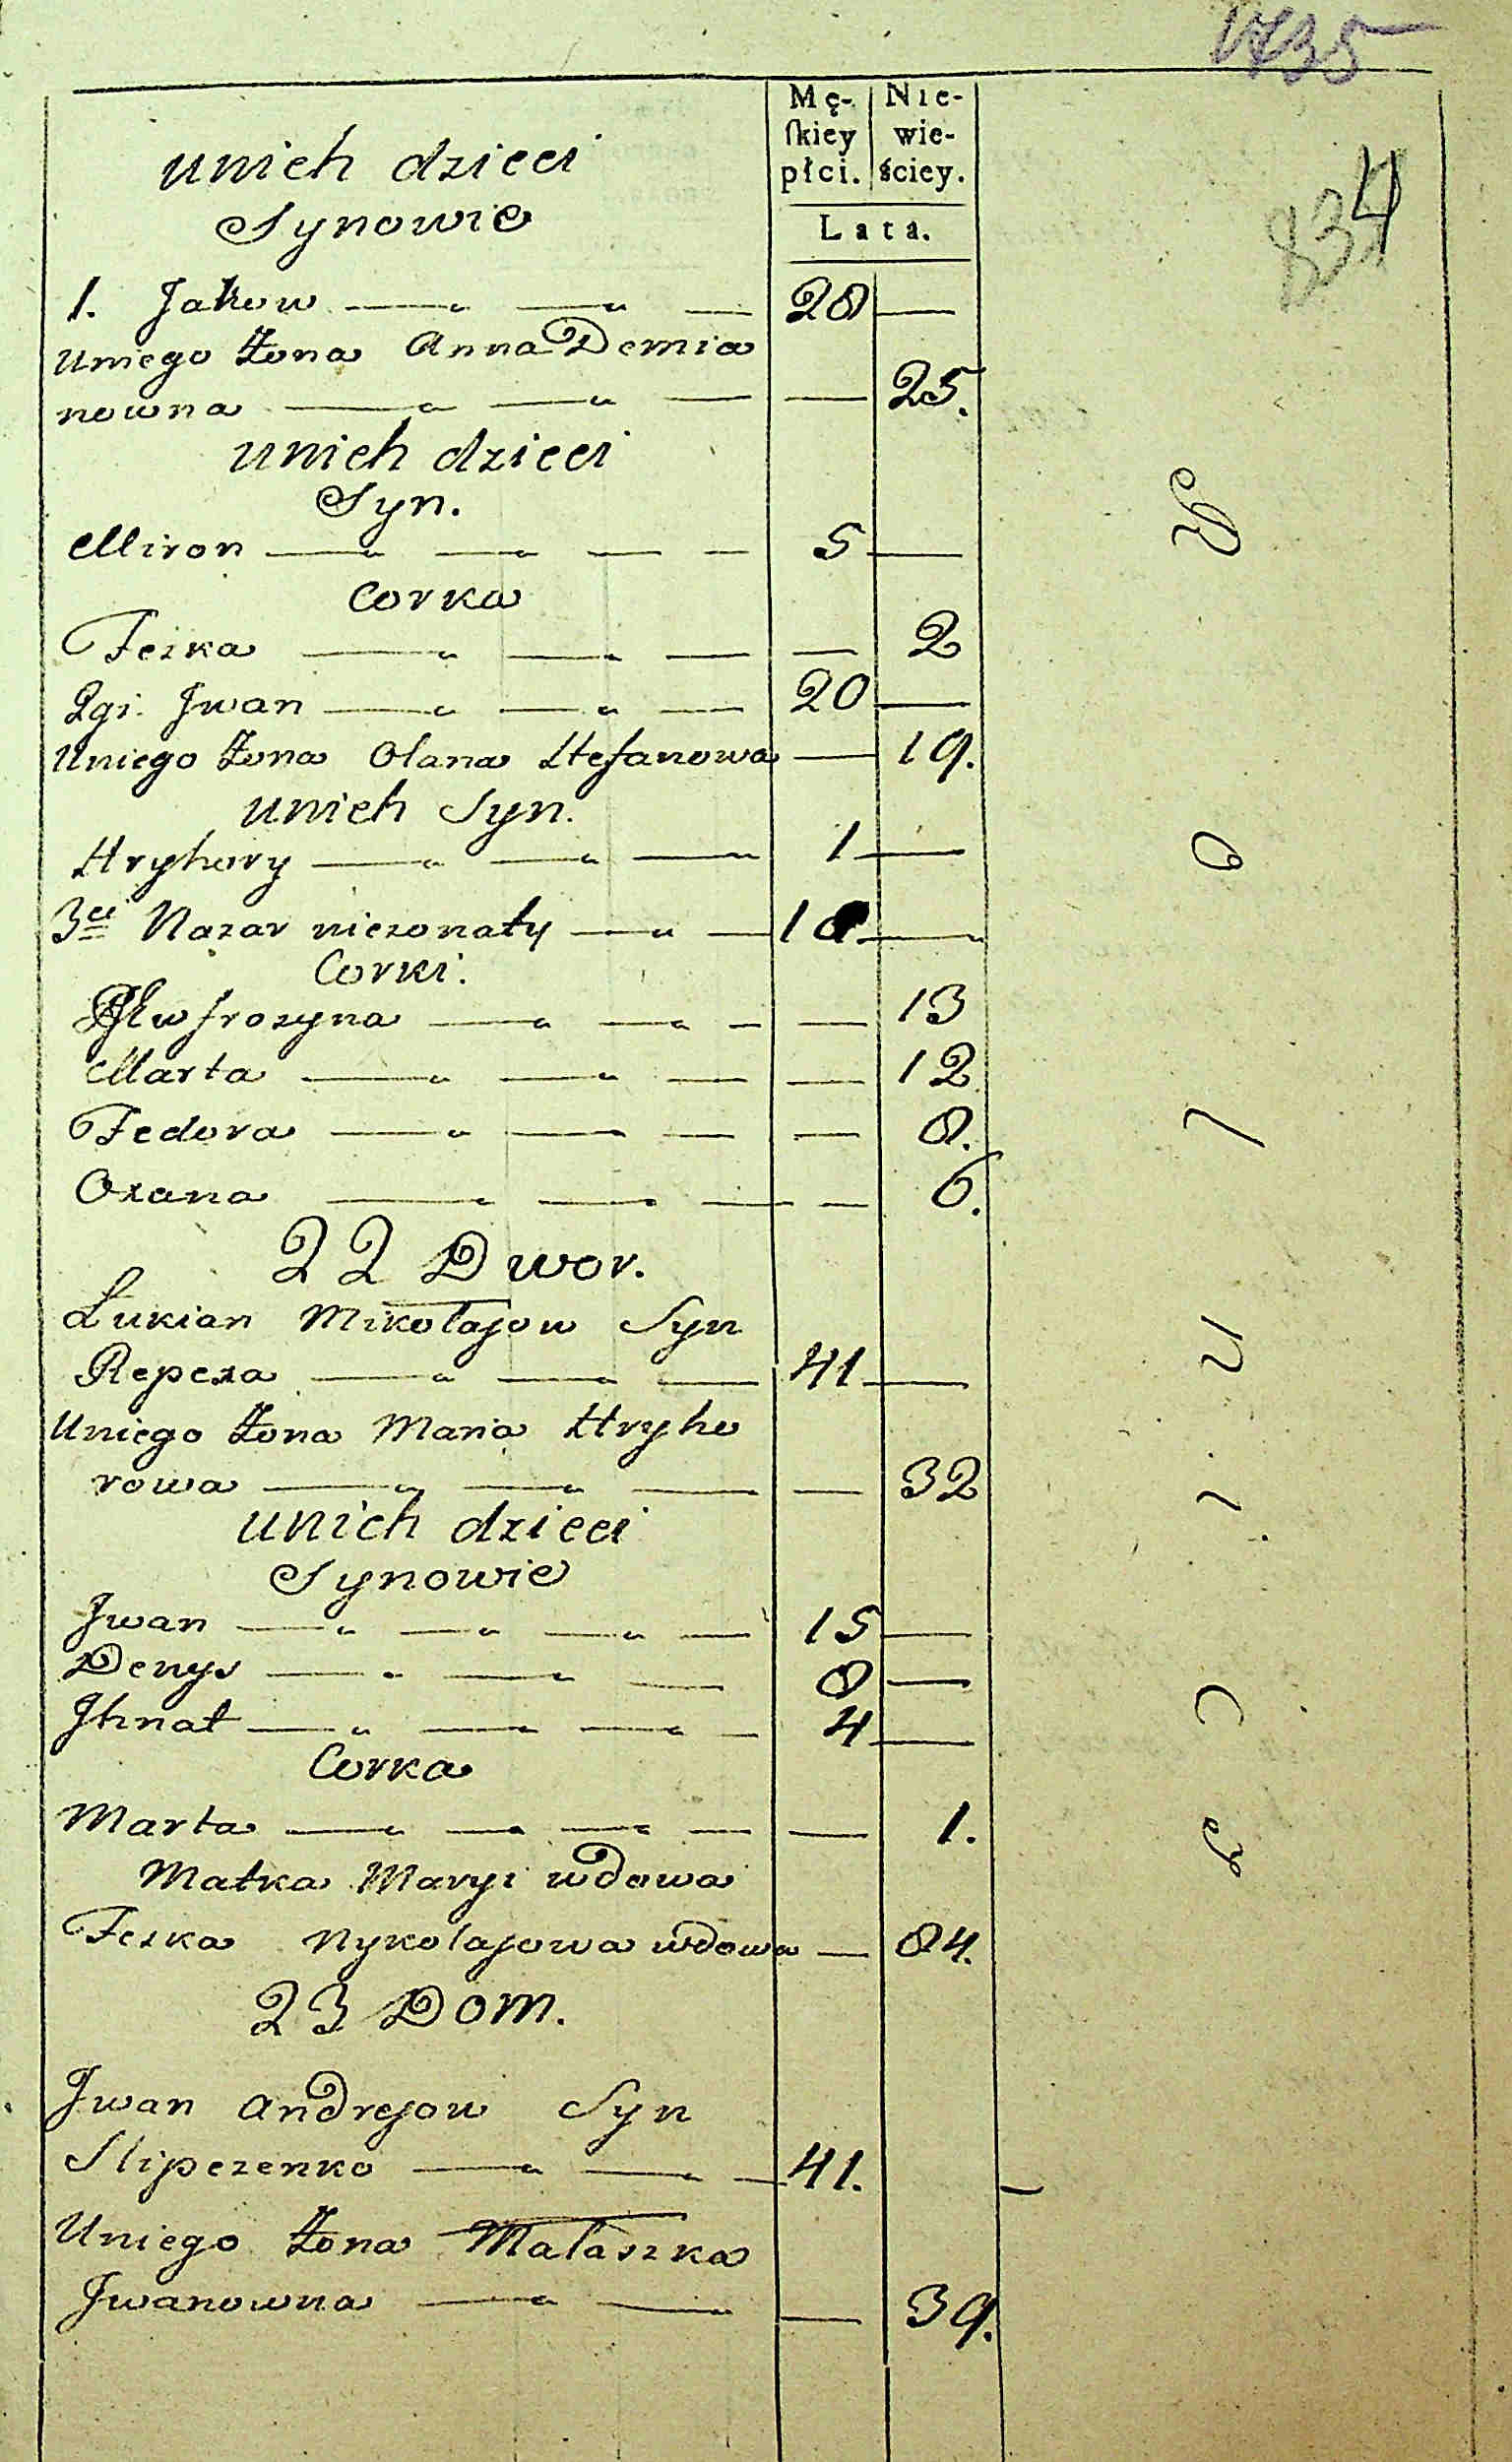 1735
Mę-
skiey
płci.
Nie-
wie-
ściey.
Lata.
834
unich dzieci
Synowie
1. Jakow 28
Uniego Żona Anna Demia
nowna 25.
unich dzieci
Syn.
Miron 5
Corka
Feska 2
2gi. Jwan 20
Uniego Żona Olana Stefanowa 19.
unich Syn.
Hryhory 1
3ci Nazar nieżonaty 18
Corki.
Ewfrozyna 13
Marta 12
Fedora 8.
Oxana 6.
22 Dwor.
Łukian Mikołajow Syn
Repexa 41
Uniego Żona Maria Hryho
rowa 32
unich dzieci
Synowie
Jwan 15
Denys 8
Jhnat 4
Corka
Marta 1.
Matka Maryi wdowa
Feska Nykolajowa wdowa 84.
23 Dom.
Jwan Andrejow Syn
Slipezenko 41.
Uniego Żona Małaszka
Jwanowna 39.